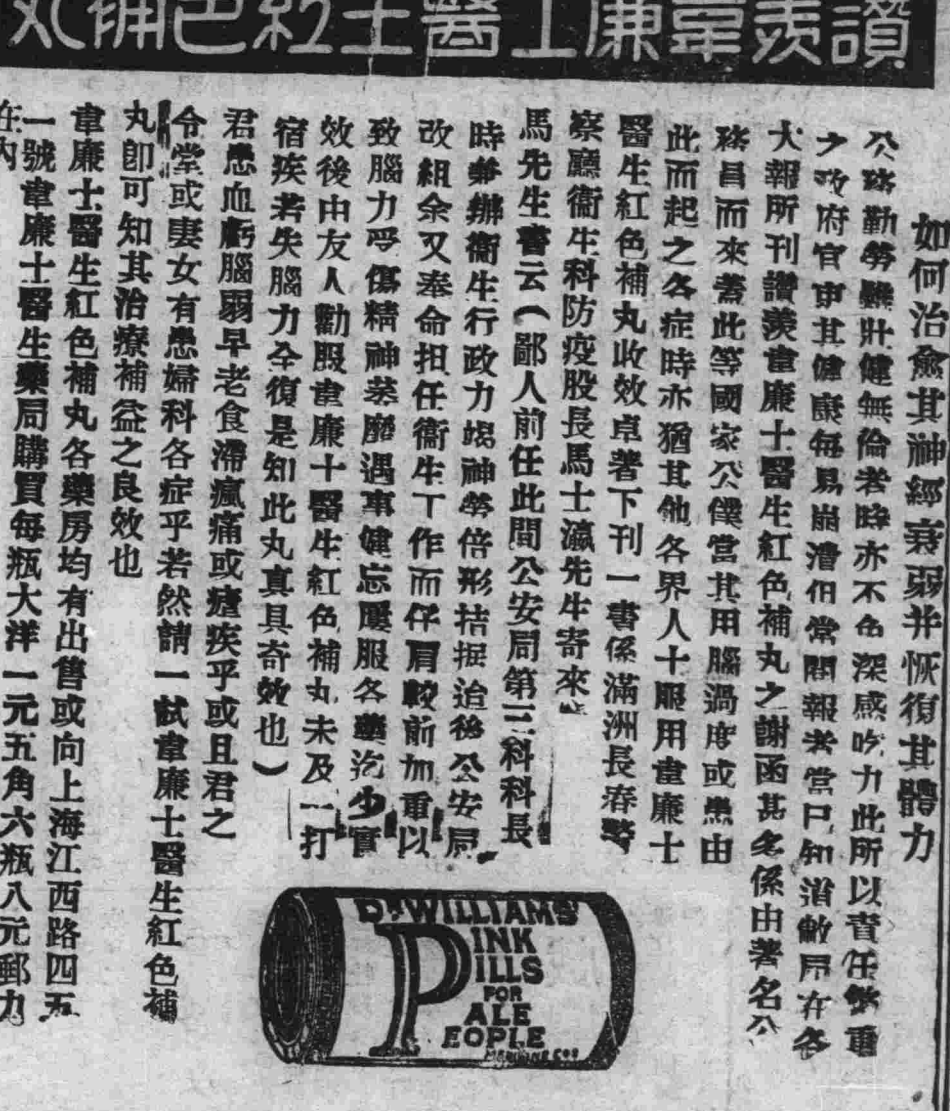 讚羨韋廉士醫生紅色補丸
如何治愈其神經衰弱并恢復其體力
公務勤勞雖壯健無倫者時亦不免深感吃力此所以責任繁重
之政府官吏其健康每易崩潰但常閱報者當已知道數月在各
大報所刊讚羨韋廉士醫生紅色補丸之謝函甚多係由著名公
務員而來蓋此等國家公僕當其用腦過度或患由
此而起之各症時亦猶其他各界人士服用韋廉士
醫生紅色補丸收效卓著下刊一書係滿洲長春警
察廳衞生科防疫股長馬士瀛先生寄來
馬先生書云(鄙人前任此間公安局第三科科長
時兼辦衞生行政力竭神勞倍形拮据迨後公安局
改組余又奉命担任衞生工作而仔肩較前加重以
致腦力受傷精神萎靡遇事健忘屢服各藥迄少實
效後由友人勸服韋廉士醫生紅色補丸未及一打
宿疾若失腦力全復是知此丸真具奇效也)
君患血虧腦弱早老食滯瘋痛或瘧疾乎或且君之
令堂或妻女有患婦科各症乎若然請一試韋廉士醫生紅色補
丸卽可知其治療補益之良效也
韋廉士醫生紅色補丸各藥房均有出售或向上海江西路四五
一號韋廉士醫生藥局購買每瓶大洋一元五角六瓶八元郵力
在內
DR WILLIAMS'
PINK
PILLS
FOR
PALE
PEOPLE
MEDICINE Co.